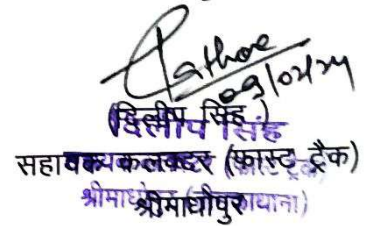 Rathore
09/02/24
(दिलीप सिंह)
दिलीप सिंह
सहायक कलक्टर (फास्ट ट्रैक)
श्रीमाधोपुर